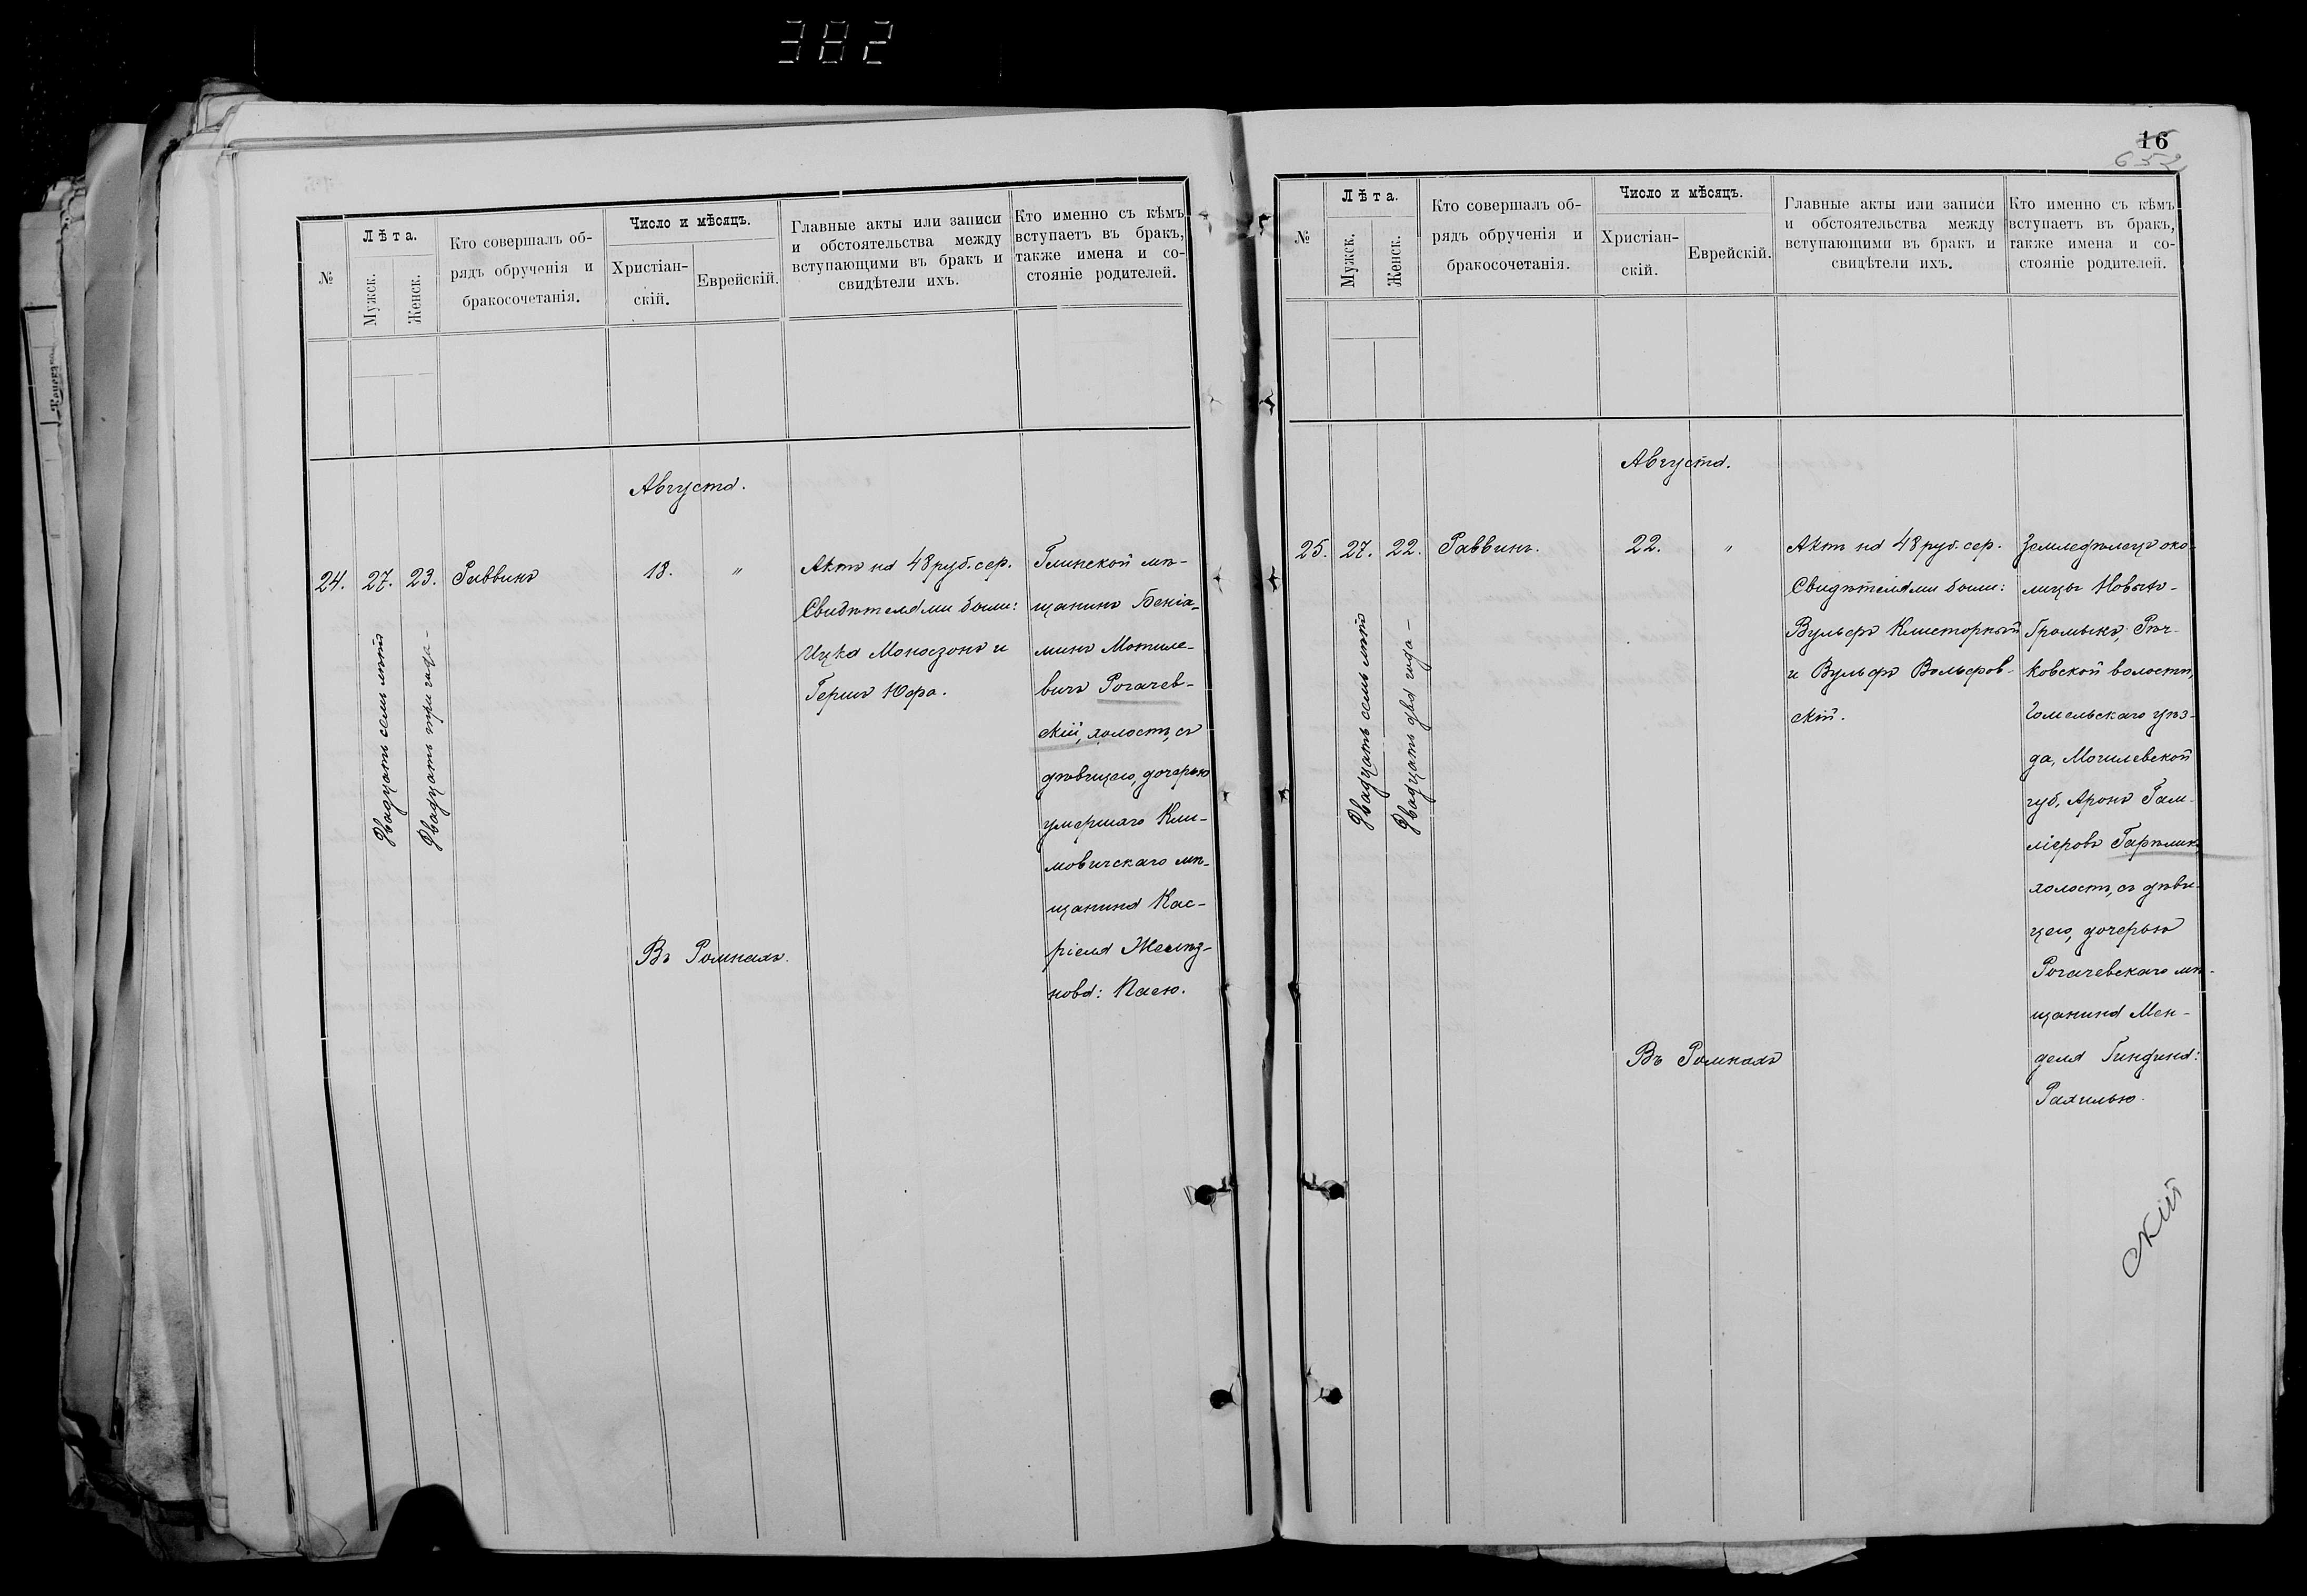 382
№
Лѣта.
Мужск.
Женск.
Кто совершалъ об-
рядъ обрученія и
бракосочетанія.
Число и мѣсяцъ.
Христіан-
скій.
Еврейскій.
Главные акты или записи
и обстоятельства между
вступающими въ бракъ и
свидѣтели ихъ.
Кто именно съ кѣмъ
вступаетъ въ бракъ,
также имена и со-
стояніе родителей.
Августа.
24.
27.
Двадцать семь лѣтъ
23.
Двадцать три года -
Раввинъ
18.
"
Въ Ромнахъ.
Актъ на 48 руб. сер.
Свидѣтелями были:
Ицка Моназонъ и
Гершъ Юфа.
Глинской мѣ-
щанинъ Беніа-
минъ Мотиле-
вичъ Рогачев-
скій, холостъ, съ
дѣвицею, дочерью
умершаго Кли-
мовичскаго мѣ-
щанина Кас-
ріеля Желѣз-
нова: Пасею.
16
652
№
Лѣта.
Мужск.
Женск.
Кто совершалъ об-
рядъ обрученія и
бракосочетанія.
Число и мѣсяцъ.
Христіан-
скій.
Еврейскій.
Главные акты или записи
и обстоятельства между
вступающими въ бракъ и
свидѣтели ихъ.
Кто именно съ кѣмъ
вступаетъ въ бракъ,
также имена и со-
стояніе родителей.
Августа.
25.
27.
Двадцать семь лѣтъ
22.
Двадцать два года -
Раввинъ.
22.
"
Въ Ромнахъ
Актъ на 48 руб. сер.
Свидѣтелями были:
Вульфъ Клисторный
и Вульфъ Вольфов-
скій.
Земледѣлецъ око-
лицы Новыхъ-
Громыкъ, Рѣч-
ковской волости,
Гомельскаго уѣз-
да, Могилевской
губ. Аронъ Гам-
ліеровъ Гарѣликъ
холостъ, съ дѣви-
цею, дочерью
Рогачевскаго мѣ-
щанина Мен-
деля Гиндина:
Рахилью.
скій